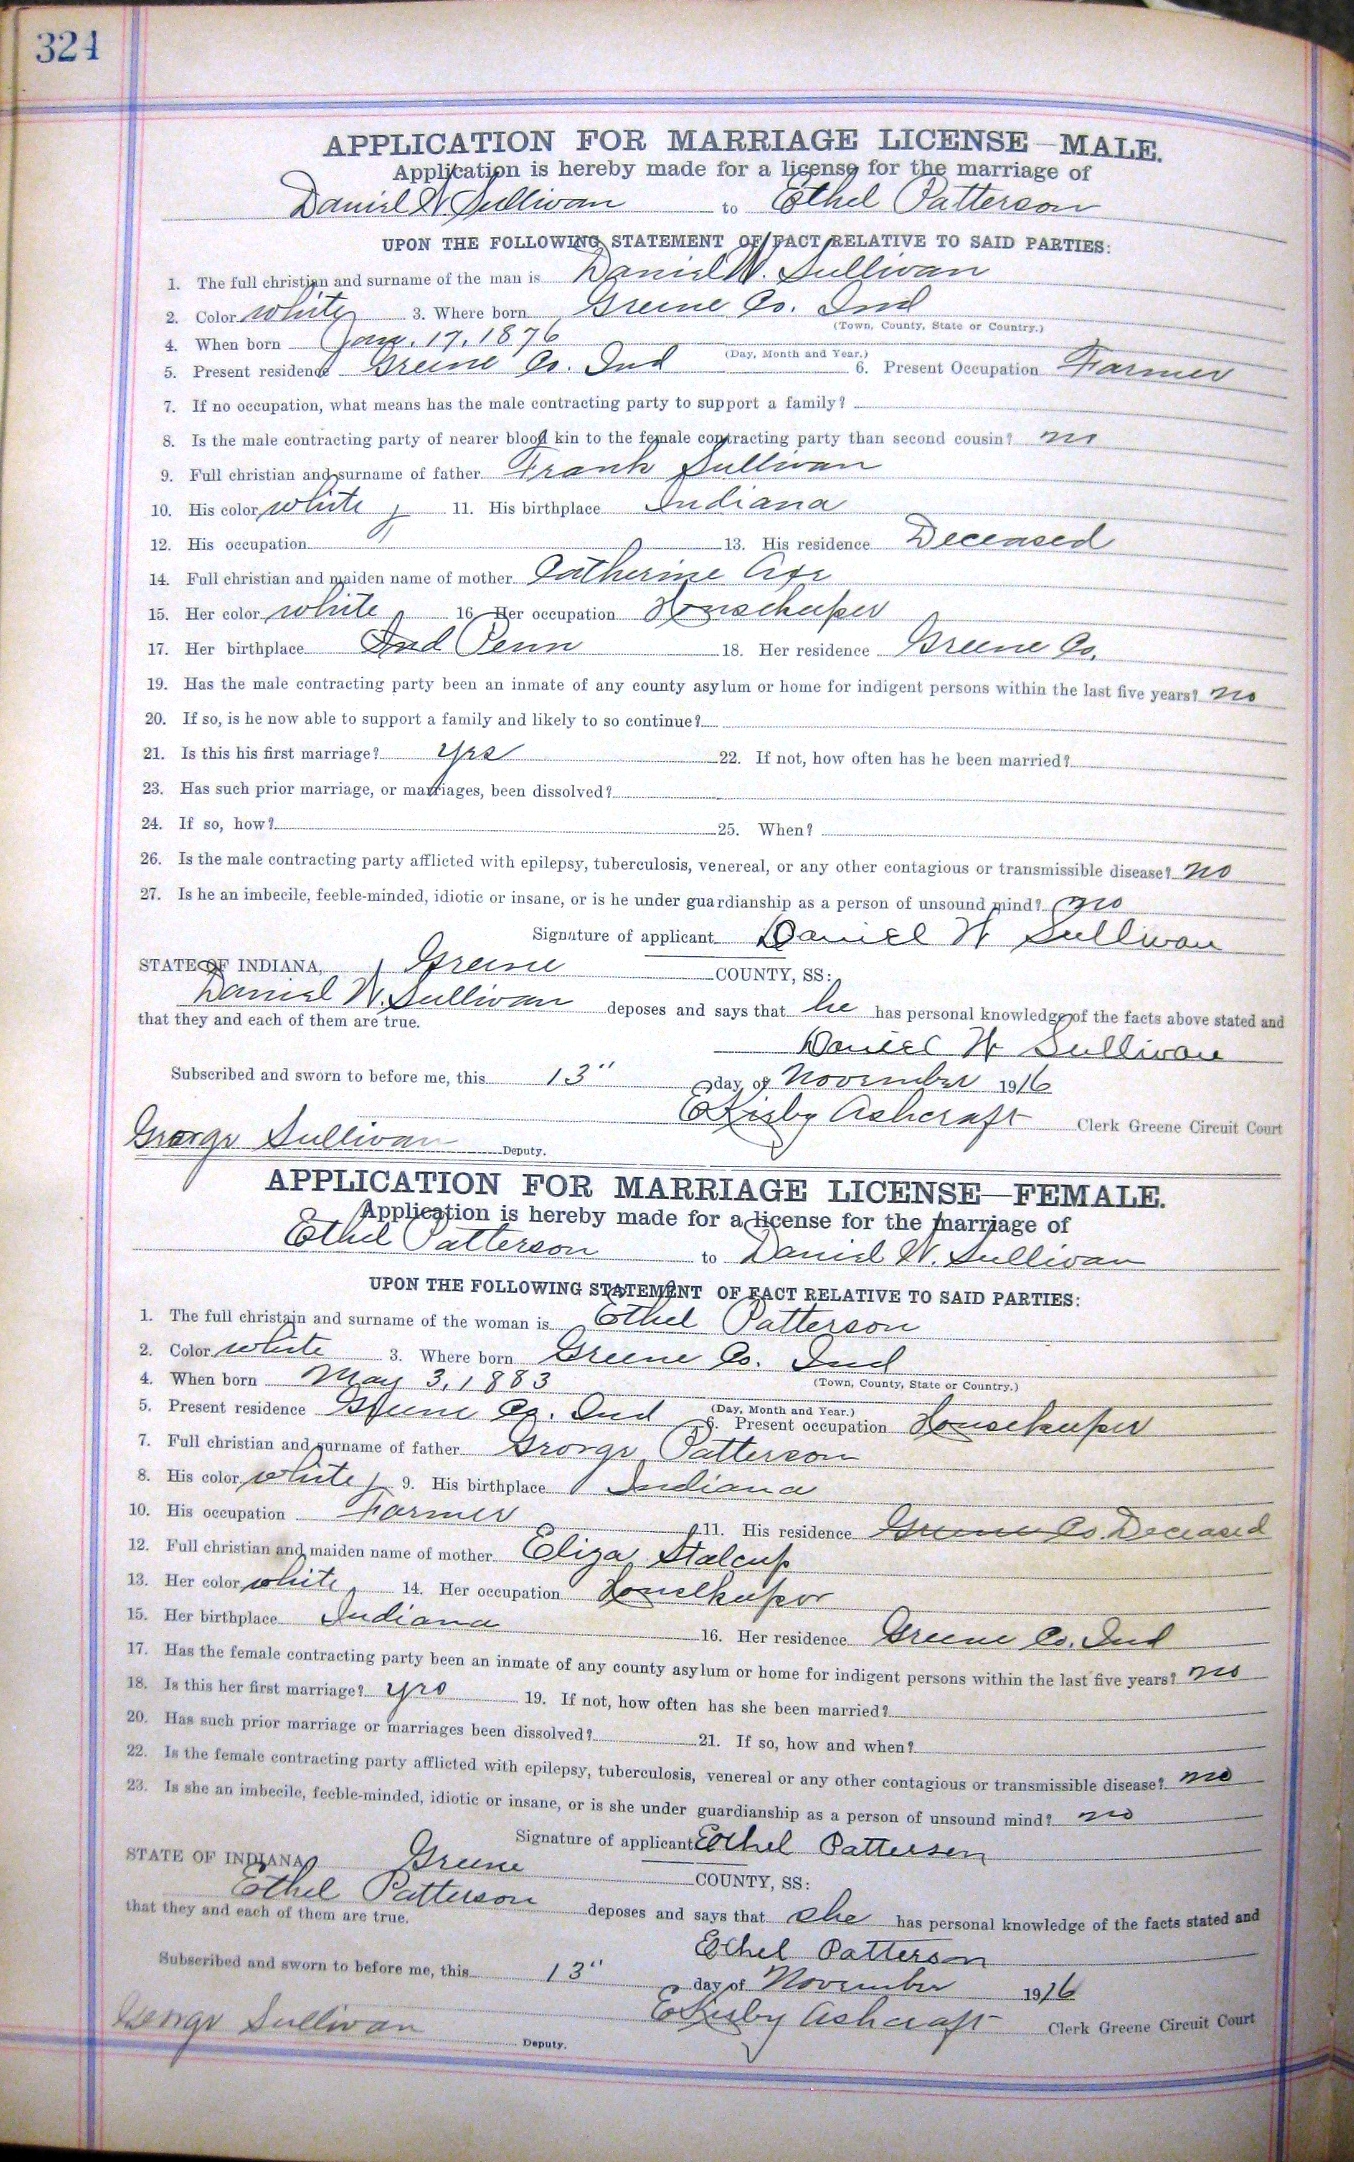 324
APPLICATION FOR MARRIAGE LICENSE—MALE.
Application is hereby made for a license for the marriage of
Daniel W. Sullivan to Ethel Patterson
UPON THE FOLLOWING STATEMENT OF FACT RELATIVE TO SAID PARTIES:
1. The full christian and surname of the man is Daniel W. Sullivan
2. Color white 3. Where born Greene Co. Ind
(Town, County, State or Country.)
4. When born Jan. 17, 1876
(Day, Month and Year.)
5. Present residence Greene Co. Ind 6. Present Occupation Farmer
7. If no occupation, what means has the male contracting party to support a family?
8. Is the male contracting party of nearer blood kin to the female contracting party than second cousin? no
9. Full christian and surname of father Frank Sullivan
10. His color white 11. His birthplace Indiana
12. His occupation 13. His residence Deceased
14. Full christian and maiden name of mother Catherine Axe
15. Her color white 16 Her occupation Housekeeper
17. Her birthplace Ind Penn 18. Her residence Greene Co.
19. Has the male contracting party been an inmate of any county asylum or home for indigent persons within the last five years? no
20. If so, is he now able to support a family and likely to so continue?
21. Is this his first marriage? yes 22. If not, how often has he been married?
23. Has such prior marriage, or marriages, been dissolved?
24. If so, how? 25. When?
26. Is the male contracting party afflicted with epilepsy, tuberculosis, venereal, or any other contagious or transmissible disease? no
27. Is he an imbecile, feeble-minded, idiotic or insane, or is he under guardianship as a person of unsound mind? no
Signature of applicant Daniel W Sullivan
STATE OF INDIANA, Greene COUNTY, SS:
Daniel W. Sullivan deposes and says that he has personal knowledge of the facts above stated and
that they and each of them are true.
Daniel W Sullivan
Subscribed and sworn to before me, this 13" day of November 1916
E Kirby Ashcraft Clerk Greene Circuit Court
George Sullivan Deputy.
APPLICATION FOR MARRIAGE LICENSE—FEMALE.
Application is hereby made for a license for the marriage of
Ethel Patterson to Daniel W. Sullivan
UPON THE FOLLOWING STATEMENT OF FACT RELATIVE TO SAID PARTIES:
1. The full christain and surname of the woman is Ethel Patterson
2. Color white 3. Where born Greene Co. Ind
(Town, County, State or Country.)
4. When born May 3, 1883
(Day, Month and Year.)
5. Present residence Greene Co. Ind 6. Present occupation Housekeeper
7. Full christian and surname of father George Patterson
8. His color white 9. His birthplace Indiana
10. His occupation Farmer 11. His residence Greene Co. Deceased
12. Full christian and maiden name of mother Eliza Stalcup
13. Her color white 14. Her occupation Housekeeper
15. Her birthplace Indiana 16. Her residence Greene Co. Ind
17. Has the female contracting party been an inmate of any county asylum or home for indigent persons within the last five years? no
18. Is this her first marriage? yes 19. If not, how often has she been married?
20. Has such prior marriage or marriages been dissolved? 21. If so, how and when?
22. Is the female contracting party afflicted with epilepsy, tuberculosis, venereal or any other contagious or transmissible disease? no
23. Is she an imbecile, feeble-minded, idiotic or insane, or is she under guardianship as a person of unsound mind? no
Signature of applicant Ethel Patterson
STATE OF INDIANA Greene COUNTY, SS:
Ethel Patterson deposes and says that she has personal knowledge of the facts stated and
that they and each of them are true.
Ethel Patterson
Subscribed and sworn to before me, this 13" day of November 1916
E Kirby Ashcraft Clerk Greene Circuit Court
George Sullivan Deputy.